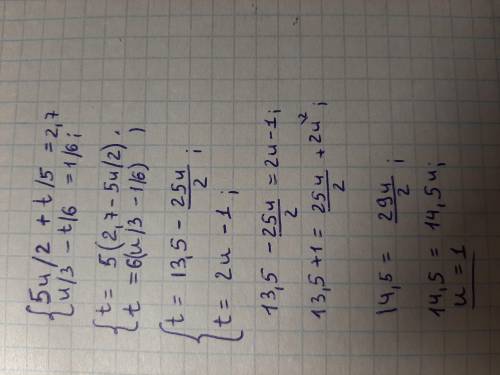 {5u/2 + t/5 = 2,7
u/3 - t/6 = 1/6;
{t = 5(2,7 - 5u/2),
t = 6(u/3 - 1/6) ;
{t = 13,5 - 25u/2 ;
t = 2u - 1;
13,5 - 25u/2 = 2u - 1;
13,5 + 1 = 25u/2 + 2u^2 ;
14,5 = 29u/2 ;
14,5 = 14,5u;
u = 1